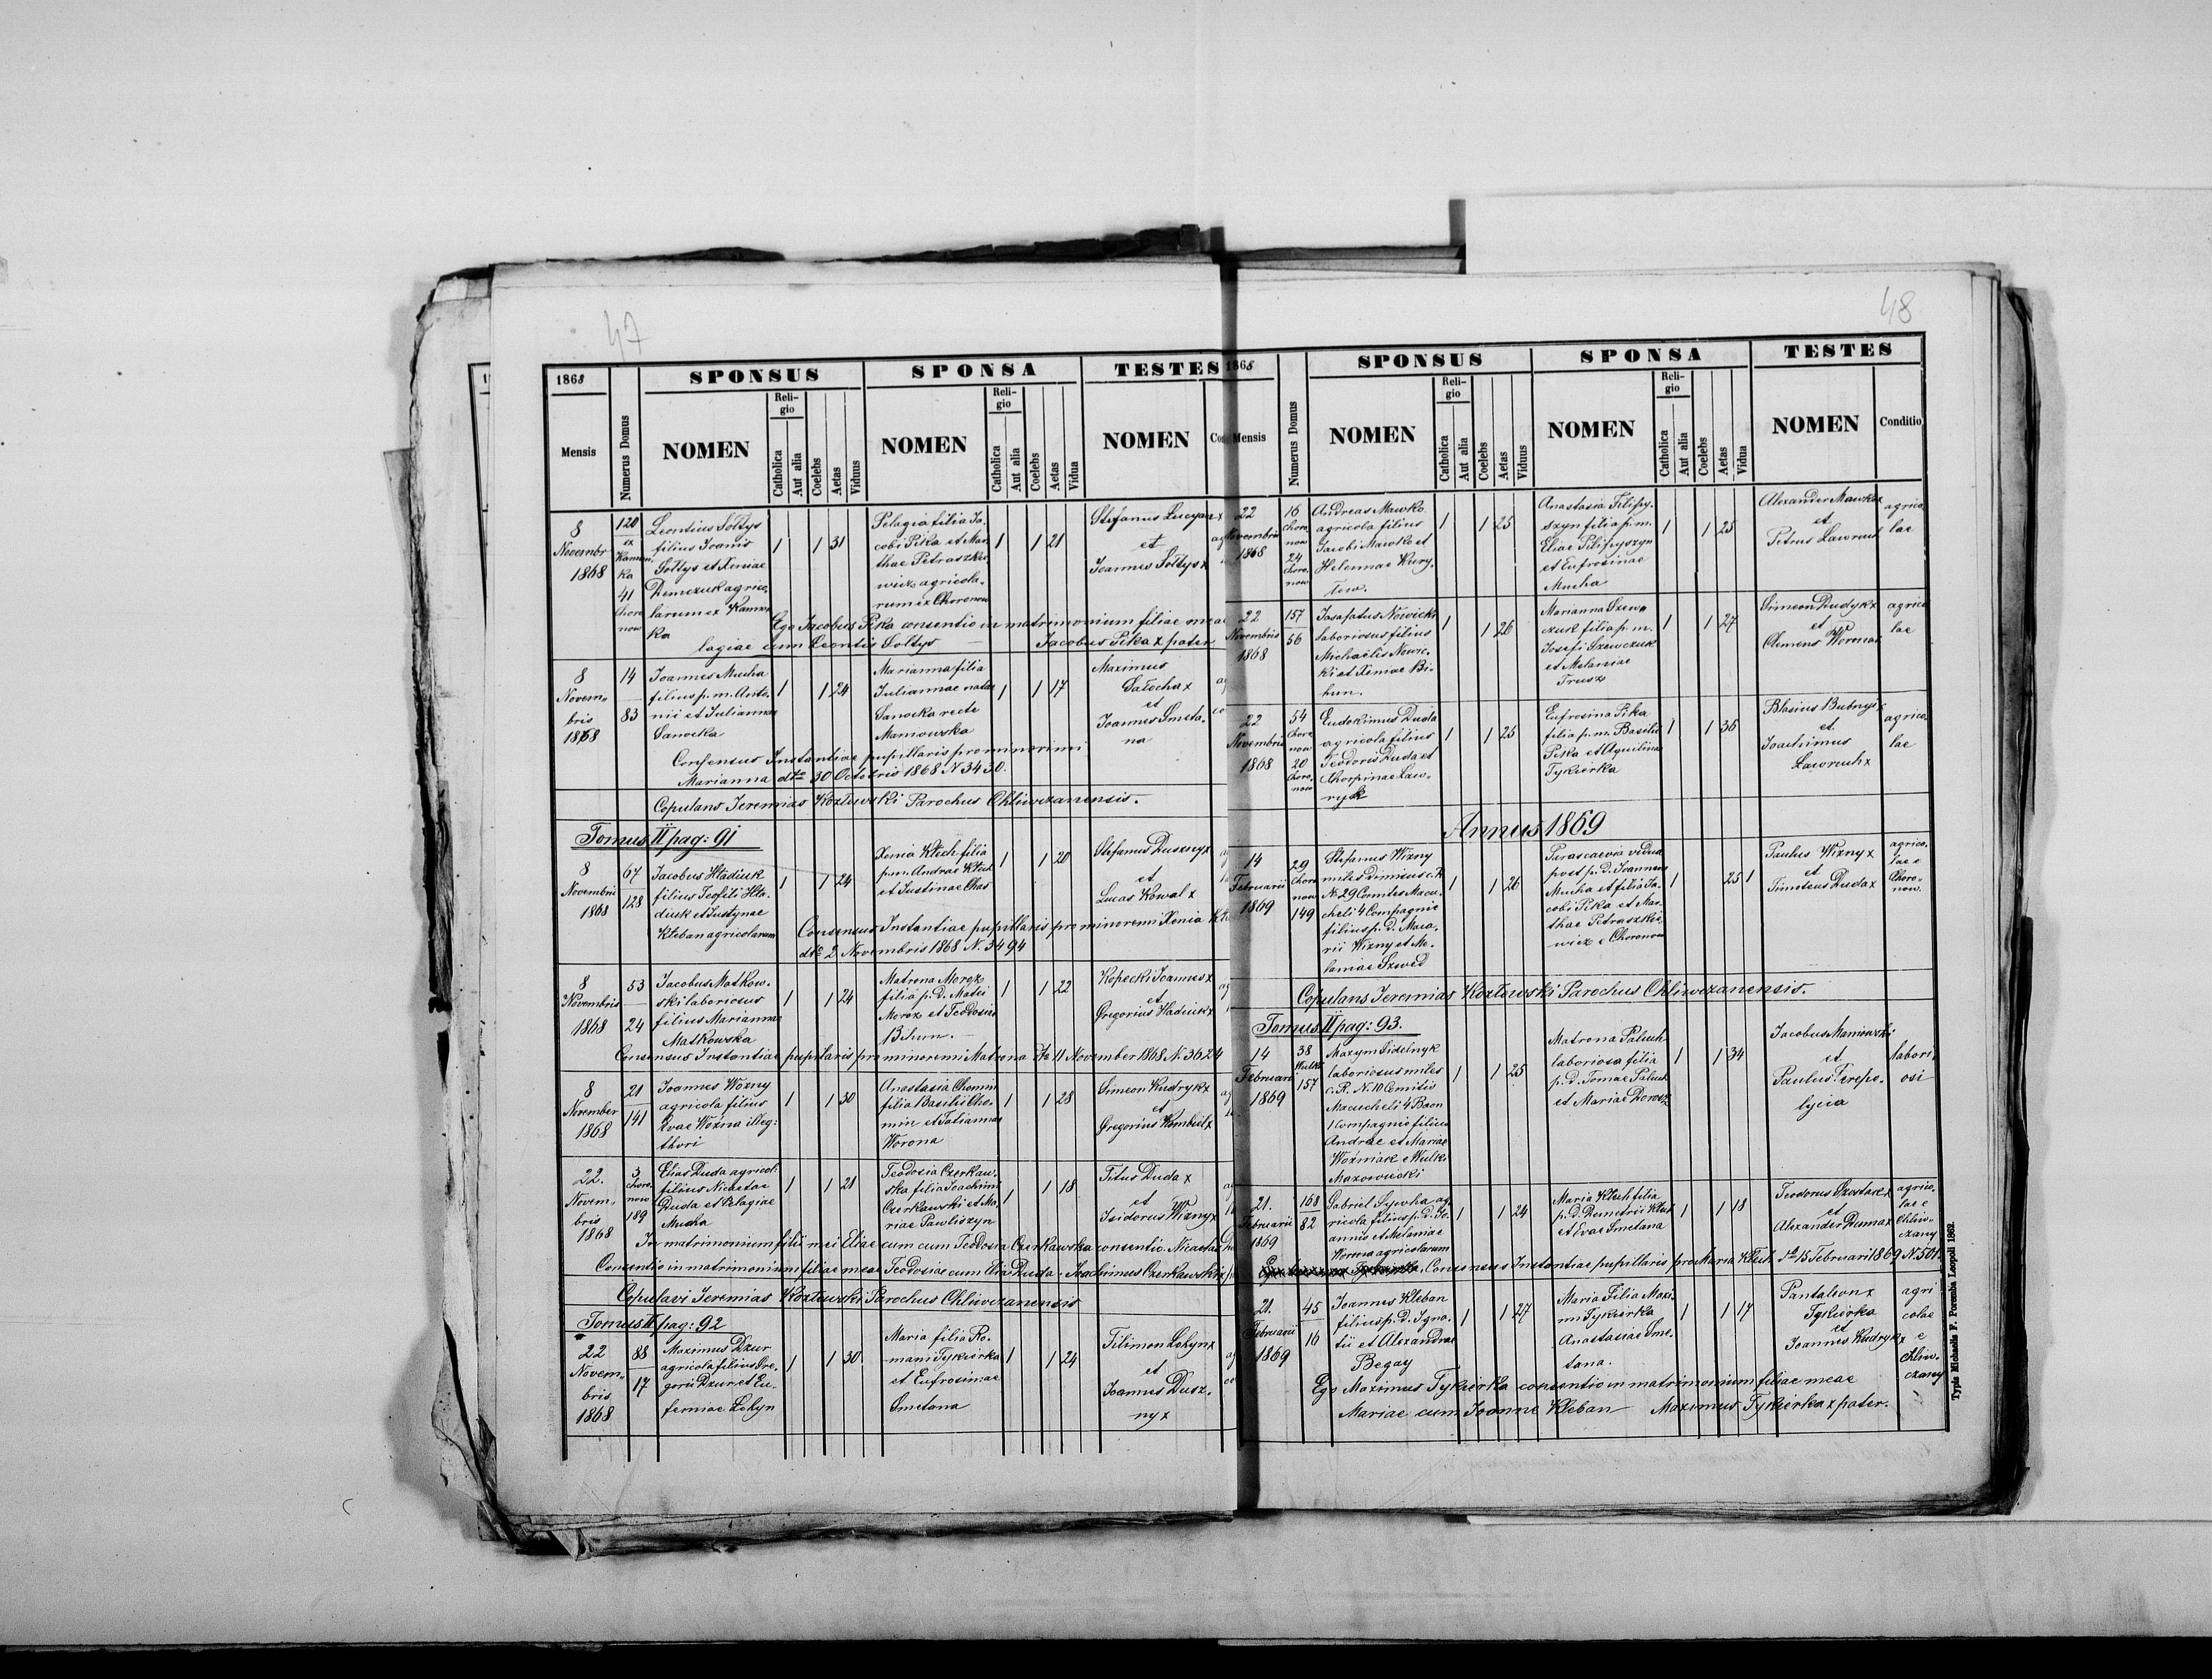 47
1868
SPONSUS
SPONSA
TESTES
Mensis
Numerus Domus
NOMEN
Reli-
gio
Catholica
Aut alia
Coelebs
Aetas
Viduus
NOMEN
Reli-
gio
Catholica
Aut alia
Coelebs
Aetas
Vidua
NOMEN
8
Novembr
1868
120
ex
Kamion
ka
41
Choro
now
Leontius Soltys
filius Joanis
Soltys et Xeniae
Demczuk agrico,
larum ex Kamion
ka
1 1 31
Pelagia filia Ja-
cobi Pika et Mar
thae Petraszke
wicz agricola-
rum ex Choronow
1 1 21
Stefanus Lucyan x
et
Joannes Soltys x
Ego Jacobus Pika consentio in matrimonium filiae meae
lagiae cum Leontis Soltys — Jacobus Pika x pater
8
Novem-
bris
1868
14
83
Joannes Mucha
filius p. m. Anto-
nii et Juliannae
Sanocka
1 1 24
Marianna filia
Juliannae natae
Sanocka recte
Mamowska
1 1 17
Maximus
Satocha x
et
Joannes Smeta-
na
Consensus Instantiae pupillaris pro minorinni
Marianna dto 30 Octobris 1868 N 3430.
Copulans Jeremias Kozłowski Parochus Chliwczanensis.
Tomus II pag: 91
8
Novembris
1868
67
128
Jacobus Hladiuk
filius Teofili Hla-
diuk et Justynae
Kleban agricolarum
1 1 24
Xenia Klech filia
p. m. Andrae Klech
et Justinae Chas
1 1 20
Stefanus Duszny x
et
Lucas Kowal x
Consensus Instantiae pupillaris pro minorenni Xenia
dto 2 Novembris 1868 N. 3494
8
Novembris
1868
53
24
Jacobus Matkow-
ski laboriosus
filius Mariannae
Matkowska
1 1 24
Matrona Moroz
filia p. d. Matei
Moroz et Teodosiae
Bihun.
1 1 22
Kopecki Joannes x
et
Gregorius Hladiuk x
Consensus Instantiae pupilaris pro minorenni Matrona dto 11 November 1868 N. 3624
8
November
1868
21
141
Joannes Wozny
agricola filius
Evae Wozna illeg:
thori
1 1 30
Anastasia Chomin
filia Basilii Cho-
min et Tatiannae
Worona
1 1 28
Simeon Kudryk x
et
Gregorius Kombiel x
22.
Novem-
bris
1868
3
Choro
now
189
Elias Duda agricol:
filius Nicaetae
Duda et Pelagiae
Mucha
1 1 21
Teodosia Czerkaw-
ska filia Joachimi
Czerkawski et Ma-
riae Pawliszyn
1 1 18
Titus Duda x
et
Isidorus Wizny x
In matrimonium filii mei Eliae cum cum Teodosia Czerkawska consentio. Nicaetas
Consentio in matrimonium filiae meae Teodosiae cum Elia Duda. Joachimus Czerkawski x
Copulavi Jeremias Kozłowski Parochus Chliwczanensis
Tomus II pag: 92
22
Novem-
bris
1868
88
17
Maximus Dzur
agricola filius Gre-
gorii Dzur et Eu-
femiae Lohyn
1 1 30
Maria filia Ro-
mani Tykierka
et Eufrosinae
Smetana
1 1 24
Filimon Lohyn x
et
Joannes Dusz-
ny x
48
1868
SPONSUS
SPONSA
TESTES
Mensis
Numerus Domus
NOMEN
Reli-
gio
Catholica
Aut alia
Coelebs
Aetas
Viduus
NOMEN
Reli-
gio
Catholica
Aut alia
Coelebs
Aetas
Vidua
NOMEN
Conditio
22
Novembris
1868
16
Choro
now
24
Choro
now
Andreas Mawko
agricola filius
Jacobi Mawko et
Helennae Kury,
low.
1 1 25
Anastasia Filipy-
szyn filia p. m.
Eliae Pilipyszyn
et Eufrosinae
Mucha
1 1 25
Alexander Mawko x
et
Petrus Lawruch
agrico
lae
22
Novembris
1868
157
56
Josafatus Nowicki
laboriosus filius
Michaelis Nowic-
ki et Xeniae Bi-
hun.
1 1 26
Marianna Szew
czuk filia p. m.
Josefi Szewczuk
et Melaniae
Trusz
1 1 27
Simeon Dudyk x
et
Clemens Worona
agrico
lae
22
Novembris
1868
54
Choro
now
20
Choro,
now
Eudokimus Duda
agricola filius
Teodoris Duda et
Chorpinae Law-
ryk
1 1 25
Eufrosina Pika
filia p. m. Basilii
Pika et Aquilina
Tykierka
1 1 36
Blasius Bubnys x
et
Joachimus
Lawruch x
agrico
lae
Annus 1869
14
Februarii
1869
29
Choro
now
149
Stefanus Wizny
miles dimisus c. R.
N: 29 Comtes Macu-
cheli 4 Compagnie
filius p. d. Maca,
rii Wizny et Me-
laniae Szwed
1 1 26
Parascaevia vidua
post p. d. Joannem
Mucha et filia Ja-
cobi Pika et Mar-
thae Petraszkie
wicz e Choronow
1 25 1
Paulus Wizny x
et
Timoteus Duda x
agrico,
lae e
Choro-
now.
Copulans Jeremias Kozłowski Parochus Chliwczanensis.
Tomus II pag: 93.
14
Februarii
1869
38
Wulki
157
Maxym Sidelnyk
laboriosus miles
c. R. N. 10 Comitis
Macucheli 4 Baon
1 Compagnie filius
Andrae et Mariae
Wozniak e Wulki
Mazowiecki
1 1 25
Matrona Paluch
laboriosa filia
p. d. Tomae Paluch
et Mariae Dorosz
1 1 34
Jacobus Mamowski
et
Paulus Terepo-
lycia
labori
osi
21.
Februarii
1869
168
82
Gabriel Sywha ag,
ricola filius p. d. Jo-
annis et Melaniae
Worona agricolarum
1 1 24
Maria Klech filia
p. d. Demetrii Klech
et Evae Smetana
1 1 18
Teodorus Szostak x
et
Alexander Duma x
agrico,
lae e
Chliw-
czany
Consensus Instantiae pupillaris pro Maria Klech dto 15 Februarii 1869 N. 501.
21.
Februarii
1869
45
16
Joannes Kleban
filius p. d. Igna-
tii et Alexandrae
Begay
1 1 27
Maria Filia Maxi-
mi Tykierka
Anastasiae Sme-
tana.
1 1 17
Pantaleon x
Tykierka
et
Joannes Kudryk x
agri
colae
e
Chliw-
czany
Ego Maximus Tykierka consentio in matrimonium filiae meae
Mariae cum Joanne Kleban — Maximus Tykierka x pater.
Typis Michaelis F. Poremba Leopoli 1862.